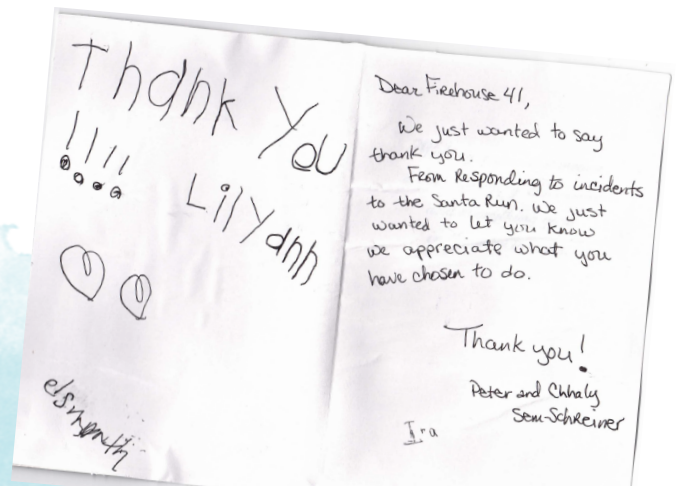 Thank You
!!!!
Lilyann
Dear Firehouse 41,
We just wanted to say
thank you.
From Responding to incidents
to the Santa Run. We just
wanted to let you know
we appreciate what you
have chosen to do.
Thank you!
Peter and Chhaly
Sem-Schreiner
Ira